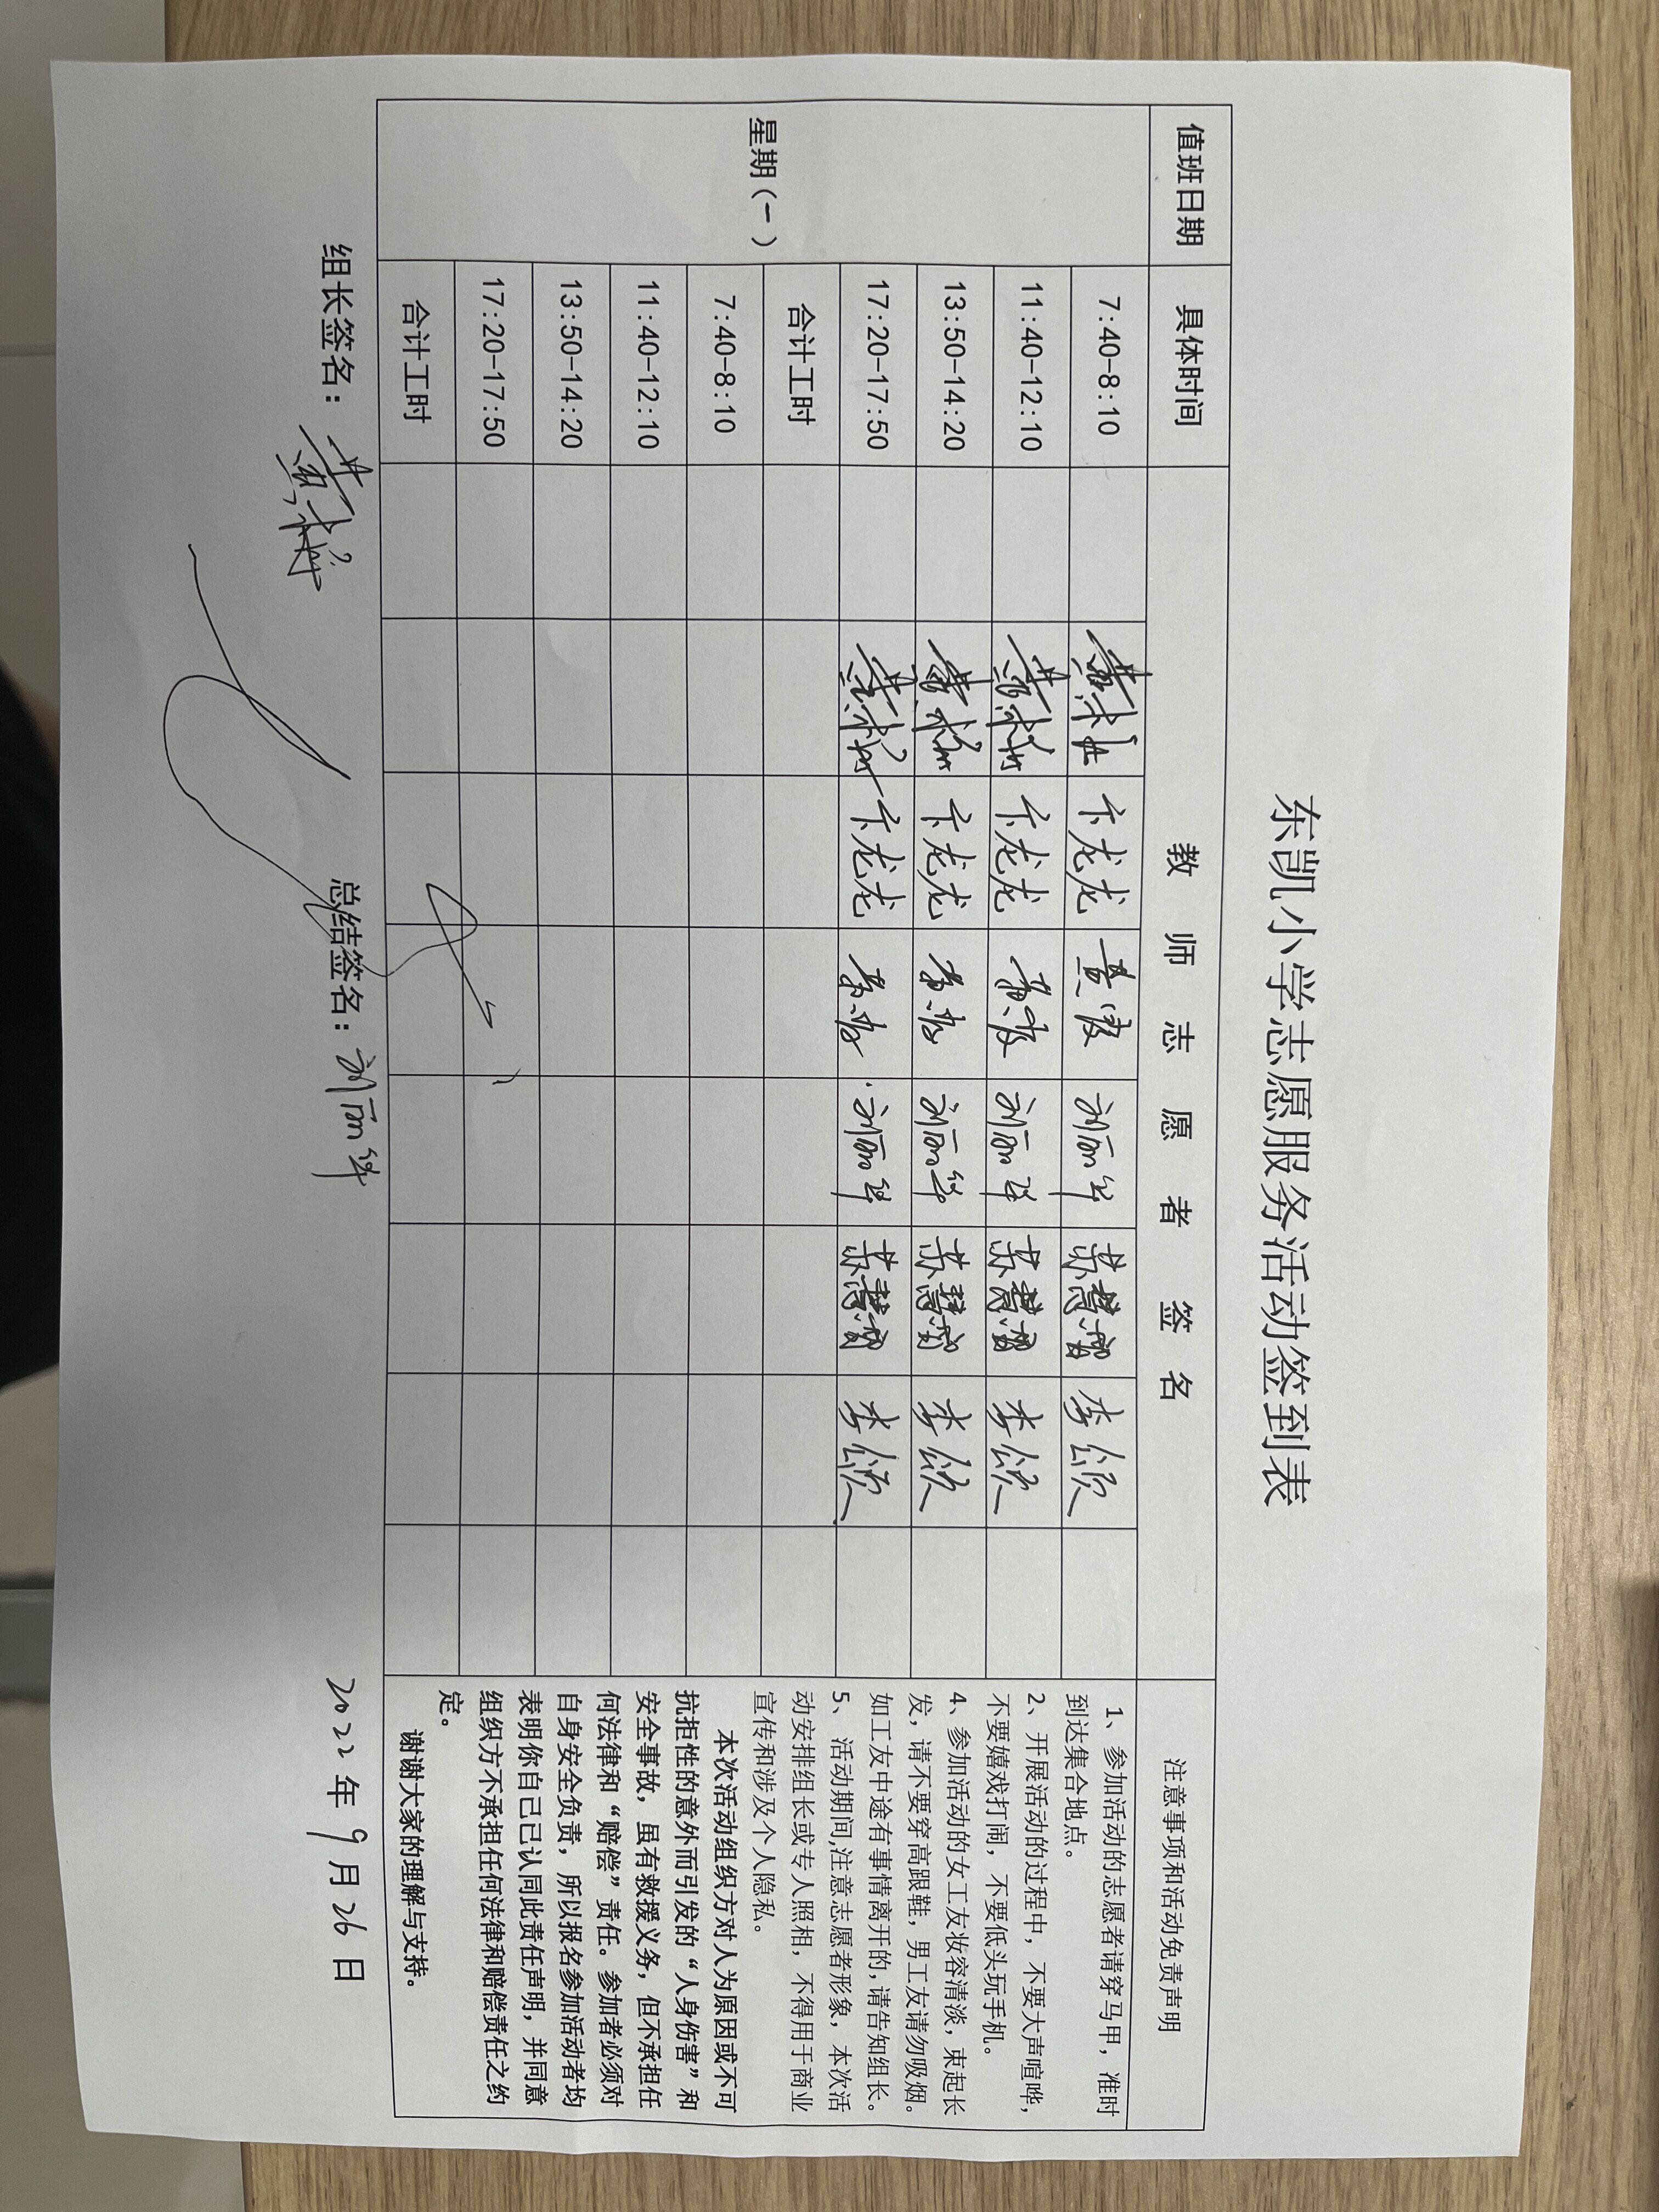 东凯小学志愿服务活动签到表
值班日期 具体时间 教师志愿者签名 注意事项和活动免责声明
星期(一)
7:40-8:10 卞龙龙 刘丽华 苏慧 李颂
11:40-12:10 卞龙龙 刘丽华 苏慧 李颂
13:50-14:20 卞龙龙 刘丽华 苏慧 李颂
17:20-17:50 卞龙龙 刘丽华 苏慧 李颂
合计工时
7:40-8:10
11:40-12:10
13:50-14:20
17:20-17:50
合计工时
1、参加活动的志愿者请穿马甲，准时
到达集合地点。
2、开展活动的过程中，不要大声喧哗，
不要嬉戏打闹，不要低头玩手机。
4、参加活动的女工友妆容清淡，束起长
发，请不要穿高跟鞋，男工友请勿吸烟。
如工友中途有事情离开的,请告知组长。
5、活动期间,注意志愿者形象，本次活
动安排组长或专人照相，不得用于商业
宣传和涉及个人隐私。
本次活动组织方对人为原因或不可
抗拒性的意外而引发的“人身伤害”和
安全事故，虽有救援义务，但不承担任
何法律和“赔偿”责任。参加者必须对
自身安全负责，所以报名参加活动者均
表明你自己已认同此责任声明，并同意
组织方不承担任何法律和赔偿责任之约
定。
谢谢大家的理解与支持。
组长签名： 总结签名：刘丽华 2022年9月26日